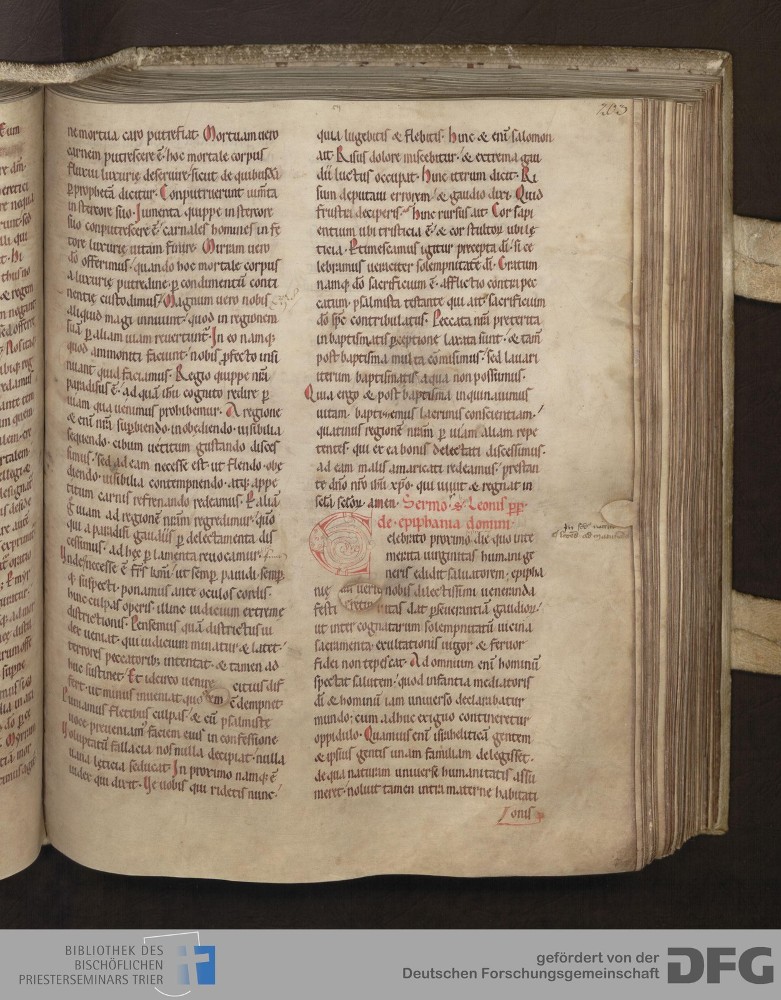 203
ne mortua caro putrefiat. Mortuam uero
carnem putrescere ē. hoc mortale corpus
fluxui luxurię deseruire. sicut de quibusdā
ꝑ prophetā dicitur. Conputruerunt iumta
in stercore suo. Iumenta quippe in stercore
suo conputrescere ē. carnales homines in fe
tore luxurię uitam finire. Mirram uero
dō offerimus. quando hoc mortale corpus
a luxurię putredine ꝑ condimentū conti
nentię custodimus. Magnum uero nobis
aliquid magi innuunt. quod in regionem
suā ꝑ aliam uiam reuertunt. In eo namq;
quod ammoniti faciunt. nobis ꝓfecto insi
nuant quid faciamus. Regio quippe nrā
paradisus ē. ad quā ihu cognito redire ꝑ
uiam qua uenimus prohibemur. A regione
& enī nrā suꝑbiendo. inobediendo. uisibilia
sequendo. cibum uetitum gustando disces
simus. sed ad eam necesse est ut flendo. obe
diendo. uisibilia contempnendo. atq; appe
titum carnis refrenando redeamus. Ꝑ aliā
g uiam ad regionē nrām regredimur. qm̄
qui a paradisi gaudiis ꝑ delectamenta dis
cessimus. ad hęc ꝑ lamenta reuocamur.
Unde necesse ē frs kmi. ut semꝑ pauidi. semꝑ
q; suspecti. ponamus ante oculos cordis.
hinc culpas operis. illinc iudicium extreme
districtionis. Pensemus quā districtus iu
dex ueniat. qui iudicium minatur & latet.
terrores peccatorib; intentat. & tamen ad
huc sustinet. Et idcirco uenire citius dif
fert. ut minus inueniat quos condempnet.
Puniamus fletibus culpas. & cū psalmista
uoce. preueniam faciem eius in confessione
Uoluptatū fallacia nos nulla decipiat. nulla
uana lęticia seducat. In proximo namq; ē
iudex qui dixit. Ve uobis qui ridetis nunc.
quia lugebitis & flebitis. Hinc & enī salomon
ait. Risus dolore miscebitur. & extrema gau
dii luctus occupat. Hinc iterum dicit. Ri
sum deputaui errorem. & gaudio dixi. Quid
frustra deciperis. Hinc rursus ait. Cor sapi
entium ubi tristicia ē. & cor stultorū ubi lę
ticia. Ꝑtimescamus igitur precepta dī. si ce
lebramus ueraciter solempnitatē dī. Gratum
namq; dō sacrificium ē. afflictio contra pec
catum. psalmista testante qui ait. Sacrificium
dō spc contribulatus. Peccata nrā preterita
in baptismatis ꝑceptione laxata sunt. & tam̄
post baptisma multa cōmisimus. sed lauari
iterum baptismatis aqua non possumus.
Quia ergo & post baptisma inquinauimus
uitam. baptizemus lacrimis conscientiam.
quatinus regionē nrām ꝑ uiam aliam repe
tentes. qui ex ea bonis delectati discessimus.
ad eam malis amaricati redeamus. prestan
te dnō nrō ihu xpō. qui uiuit & regnat in
sclā sclorꝭ. amen. Sermo s̄ Leonis pp̄
de epiphania domini.
Celebrato proximo die quo inte
merata uirginitas humani ge
neris edidit saluatorem. epipha
nię nobis dilectissimi ueneranda
festi uitas dat ꝑseuerantiā gaudior.
ut inter cognatarum solempnitatū uicina
sacramenta. exultationis uigor & feruor
fidei non tepescat. Ad omnium enī hominū
spectat salutem. quod infantia mediatoris
dī & hominū iam uniuerso declarabatur
mundo. cum adhuc exiguo contineretur
oppidulo. Quamuis enī israheliticā gentem
& ipsius gentis unam familiam delegisset.
de qua naturam uniuersę humanitatis assu
meret. noluit tamen intra maternę habitati
onis
BIBLIOTHEK DES
BISCHÖFLICHEN
PRIESTERSEMINARS TRIER
gefördert von der
Deutschen Forschungsgemeinschaft
DFG